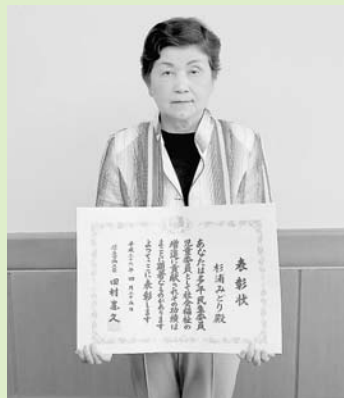 表彰状
杉浦みどり殿
あなたは多年民生委員
児童委員として社会福祉の
増進に貢献されその功績は
まことに顕著なものがあります
よってここに表彰します
平成二十八年四月二十九日
厚生労働大臣 田村憲久